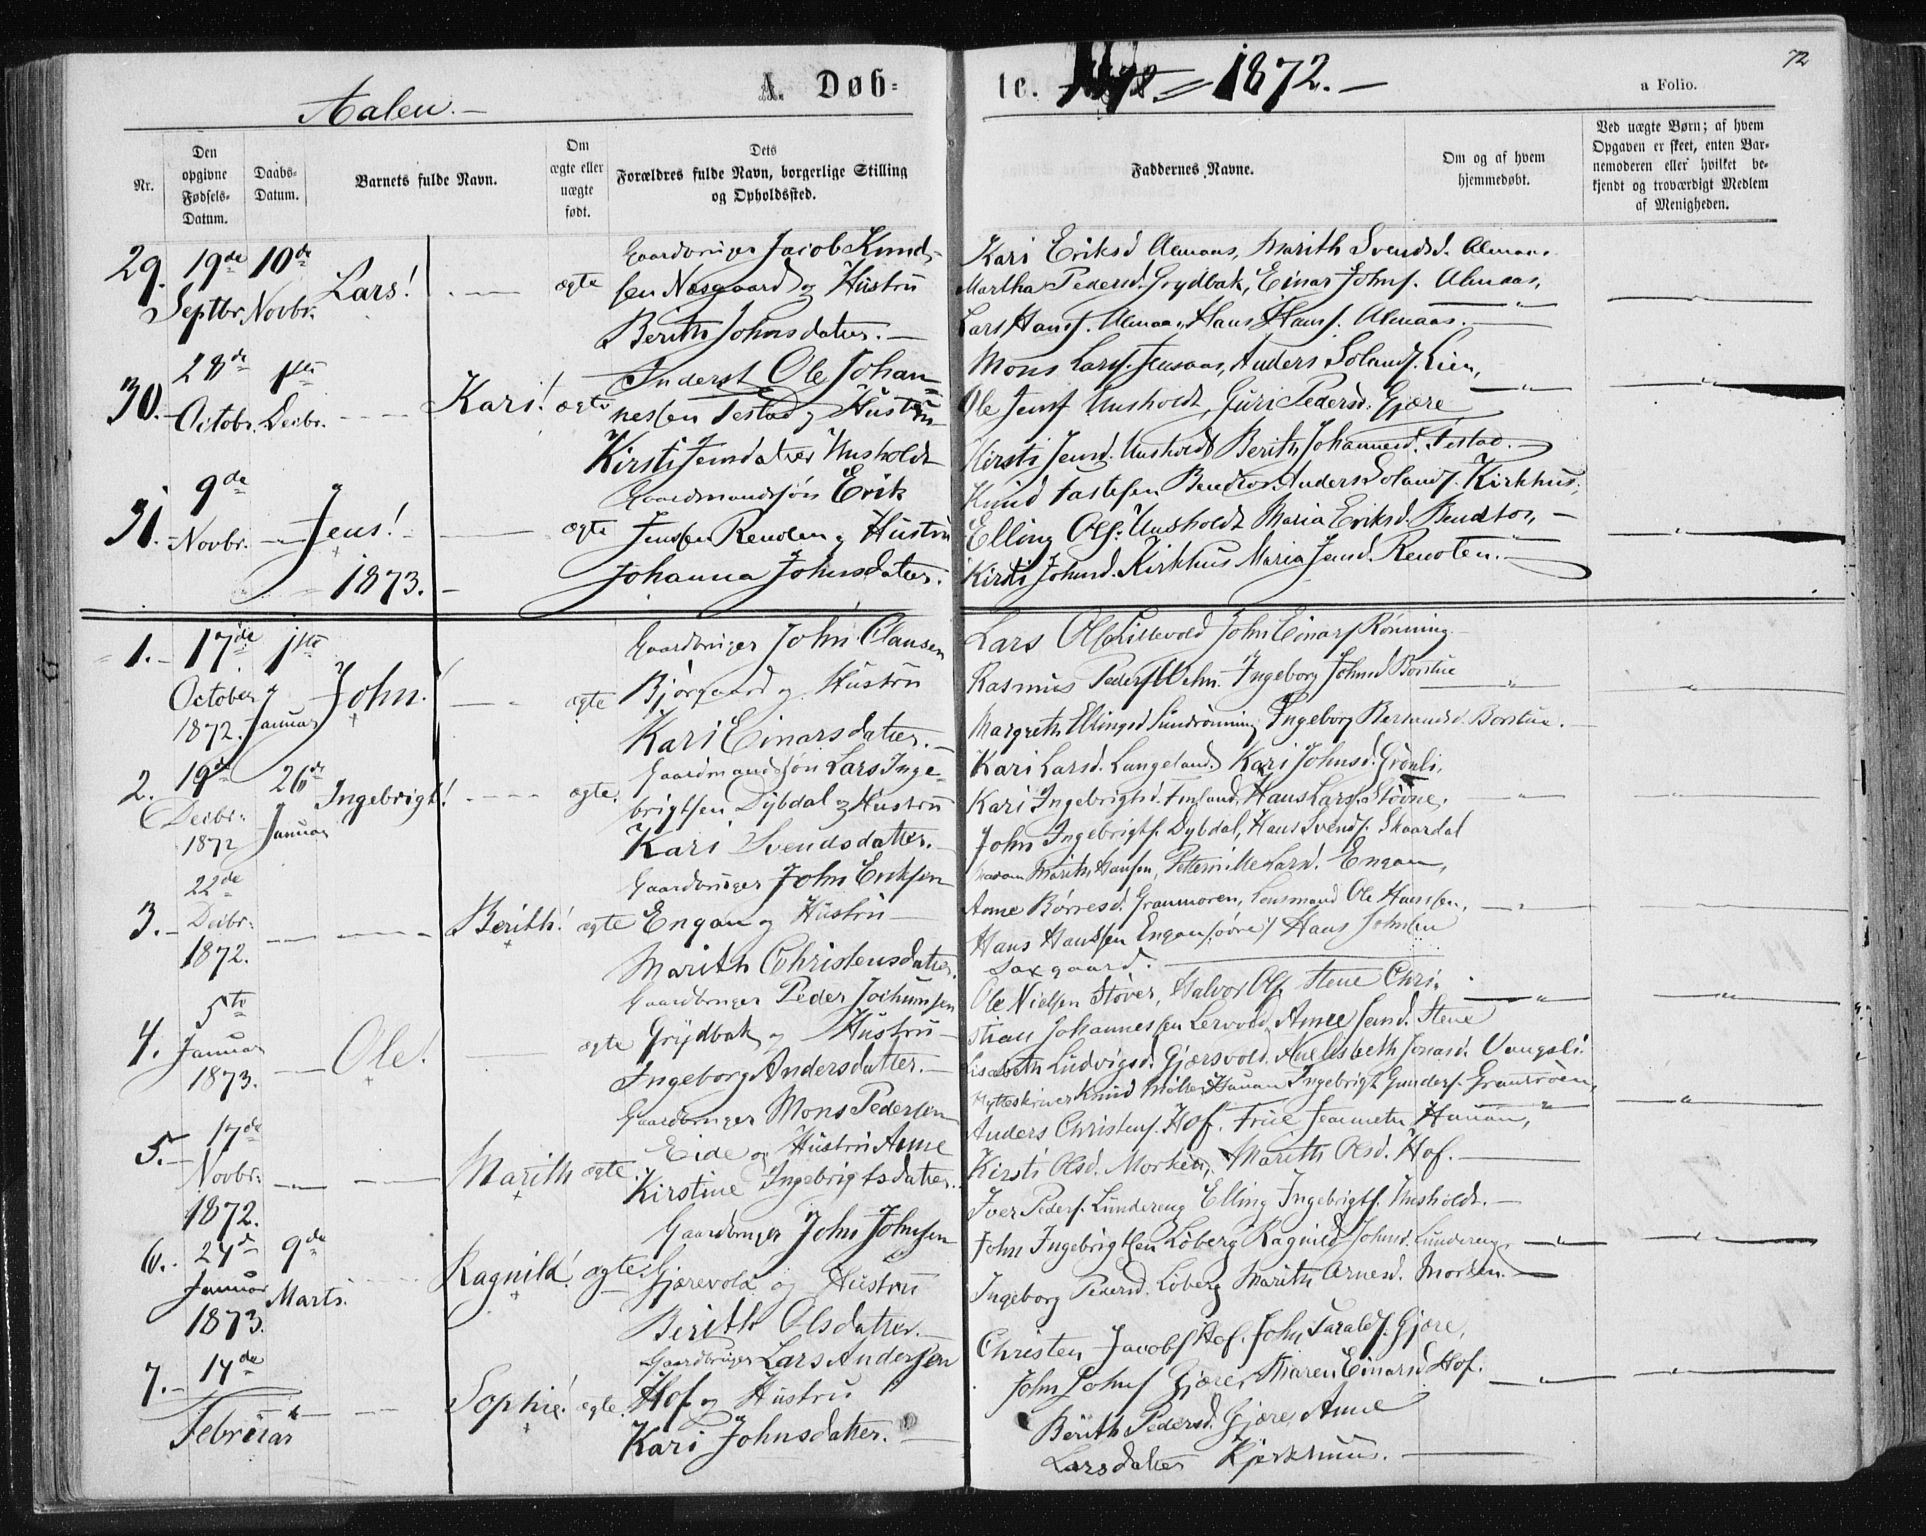 Aalen.—
A. Døb=
Nr.
Den opgivne Fødsels-Datum.
Daabs-Datum.
Barnets fulde Navn.
Om ægte eller uægte født.
Dets Forældres fulde Navn, borgerlige Stilling og Opholdssted.
29. 19de Septbr. 10de Novbr. Lars! ægte
Gaardbruger Jacob Knud-
sen Næsgaard og Hustru
Berith Johnsdatter.—
30. 28de Octobr. 1ste Decbr. Kari! ægte
Inderst Ole Johan-
nessen Testad og Hustru
Kirsti Jensdatter Unsholdt
31. 9de Novbr. — Jens! ægte
Gaardmandssøn Erik
Jenssen Renolen og Hustru
Johanna Johnsdatter.
1873.
1. 17de October 1872. 1ste Januar John! ægte
Gaardbruger John Clausen
Bjørgaard og Hustru
Kari Einarsdatter.—
2. 19de Decbr. 1872 26de Januar Ingebrigt! ægte.
Gaardmandssøn Lars Inge-
brigtsen Dybdal og Hustru
Kari Svendsdatter.—
3. 22de Decbr. 1872. Berith! ægte
Gaardbruger John Eriksen
Engan og Hustru
Marith Christensdatter.
4. 5te Januar 1873. Ole! ægte
Gaardbruger Peder Jochumsen
Grydbak og Hustru
Ingeborg Andersdatter.—
5. 17de Novbr. 1872. Marith ægte
Gaardbruger Mons Pedersen
Eide og Hustru Anne
Kirstine Ingebrigtsdatter.
6. 27de Januar 1873. 9de Marts. Ragnild! ægte
Gaardbruger John Johnsen
Gjærevold og Hustru
Berith Olsdatter.—
7. 14de Februar Sophie! ægte.
Gaardbruger Lars Andersen
Hof og Hustru
Kari Johnsdatter.—
72
te. 1872.—
a Folio.
Faddernes Navne.
Om og af hvem hjemmedøbt.
Ved uægte Børn; af hvem Opgaven er skeet, enten Barnemoderen eller hvilket bekjendt og troværdigt Medlem af Menigheden.
Kari Eriksd Almaas, Marith Svendsd. Almaas.
Martha Pedersd. Grydbak, Einar Johns. Almaas,
Lars Hans. Almaas, Hans Hans. Almaas.—
Mons Lars. Jensaas, Anders Lien,
Ole Jens Unsholdt, Guri Pedersd. Gjære
Kirsti Jensd. Unsholdt Berith Johannesd. Testad.—
Knud Bendtos Anders Kirkhus,
Elling Ols. Unsholdt Maria Eriksd. Bendtos,—
Kirsti Johnsd. Kirkhus Maria Jensd. Renolen.—
Lars Ols Lillevold John Einars Rønning
Rasmus Peders Ingeborg Johnsd Borstue
Margreth Ellingsd Ingeborg Borstue.—
Kari Larsd. Langeland, Kari Johnsd. Grønli,
Kari Ingebrigtsd. Finland, Hans Lars. Støvne,
John Ingebrigts. Dybdal, Hans Svends. Skaardal
Madam Marith Hansen, Larsd. Engan,
Anne Børresd. Granmoren, Lensmand Ole Hanssen,
Hans Hanssen Engan (øvre) Hans Johnsen
Saxgaard.
Ole Nielsen Støver, Halvor Ols. Stene Chri-
stian Johannessen Lervold, Anne Jensd. Stene
Lisabeth Ludvigsd. Gjærsvold, Jonasd. Vangsli
Hytteskriver Knud Møller Hauan Ingebrigt Gunders. Grantrøen,
Anders Christens. Hof. Frue Hauan,
Kirsti Olsd. Morken, Marith Olsd. Hof.
Iver Peders. Lundereng Elling Ingebrigts. Unsholdt.—
John Ingebrigtsen Løberg Ragnild Johnsd. Lundereng
Ingeborg Pedersd. Løberg Marith Arnesd. Morken.—
Christen Jacobs Hof. John Tarals. Gjære,
John Johns Gjære, Maren Einarsd Hof.
Berith Pedersd. Gjære, Anne
Larsdatter